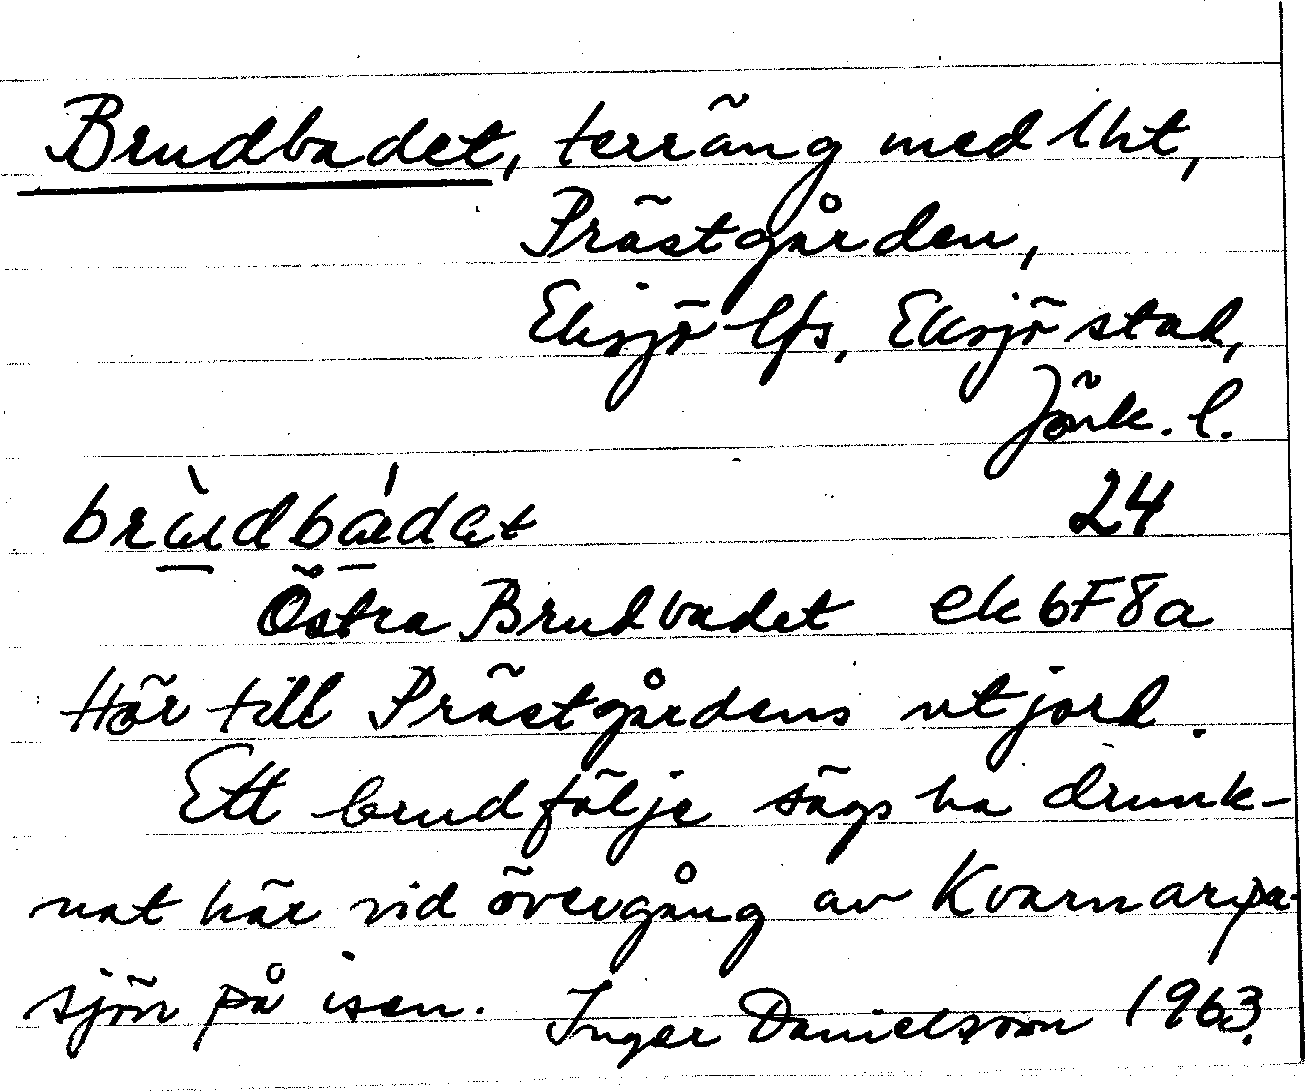 Brudbadet, terräng med lht,
Prästgården,
Eksjö lfs, Eksjö stad,
Jönk. l.
24
Östra Brudbadet ek 6F8a
Hör till Prästgårdens utjord.
Ett brudfölje sägs ha drunk-
nat här vid övergång av Kvarnarpa-
sjön på isen. Inger Danielsson 1963.